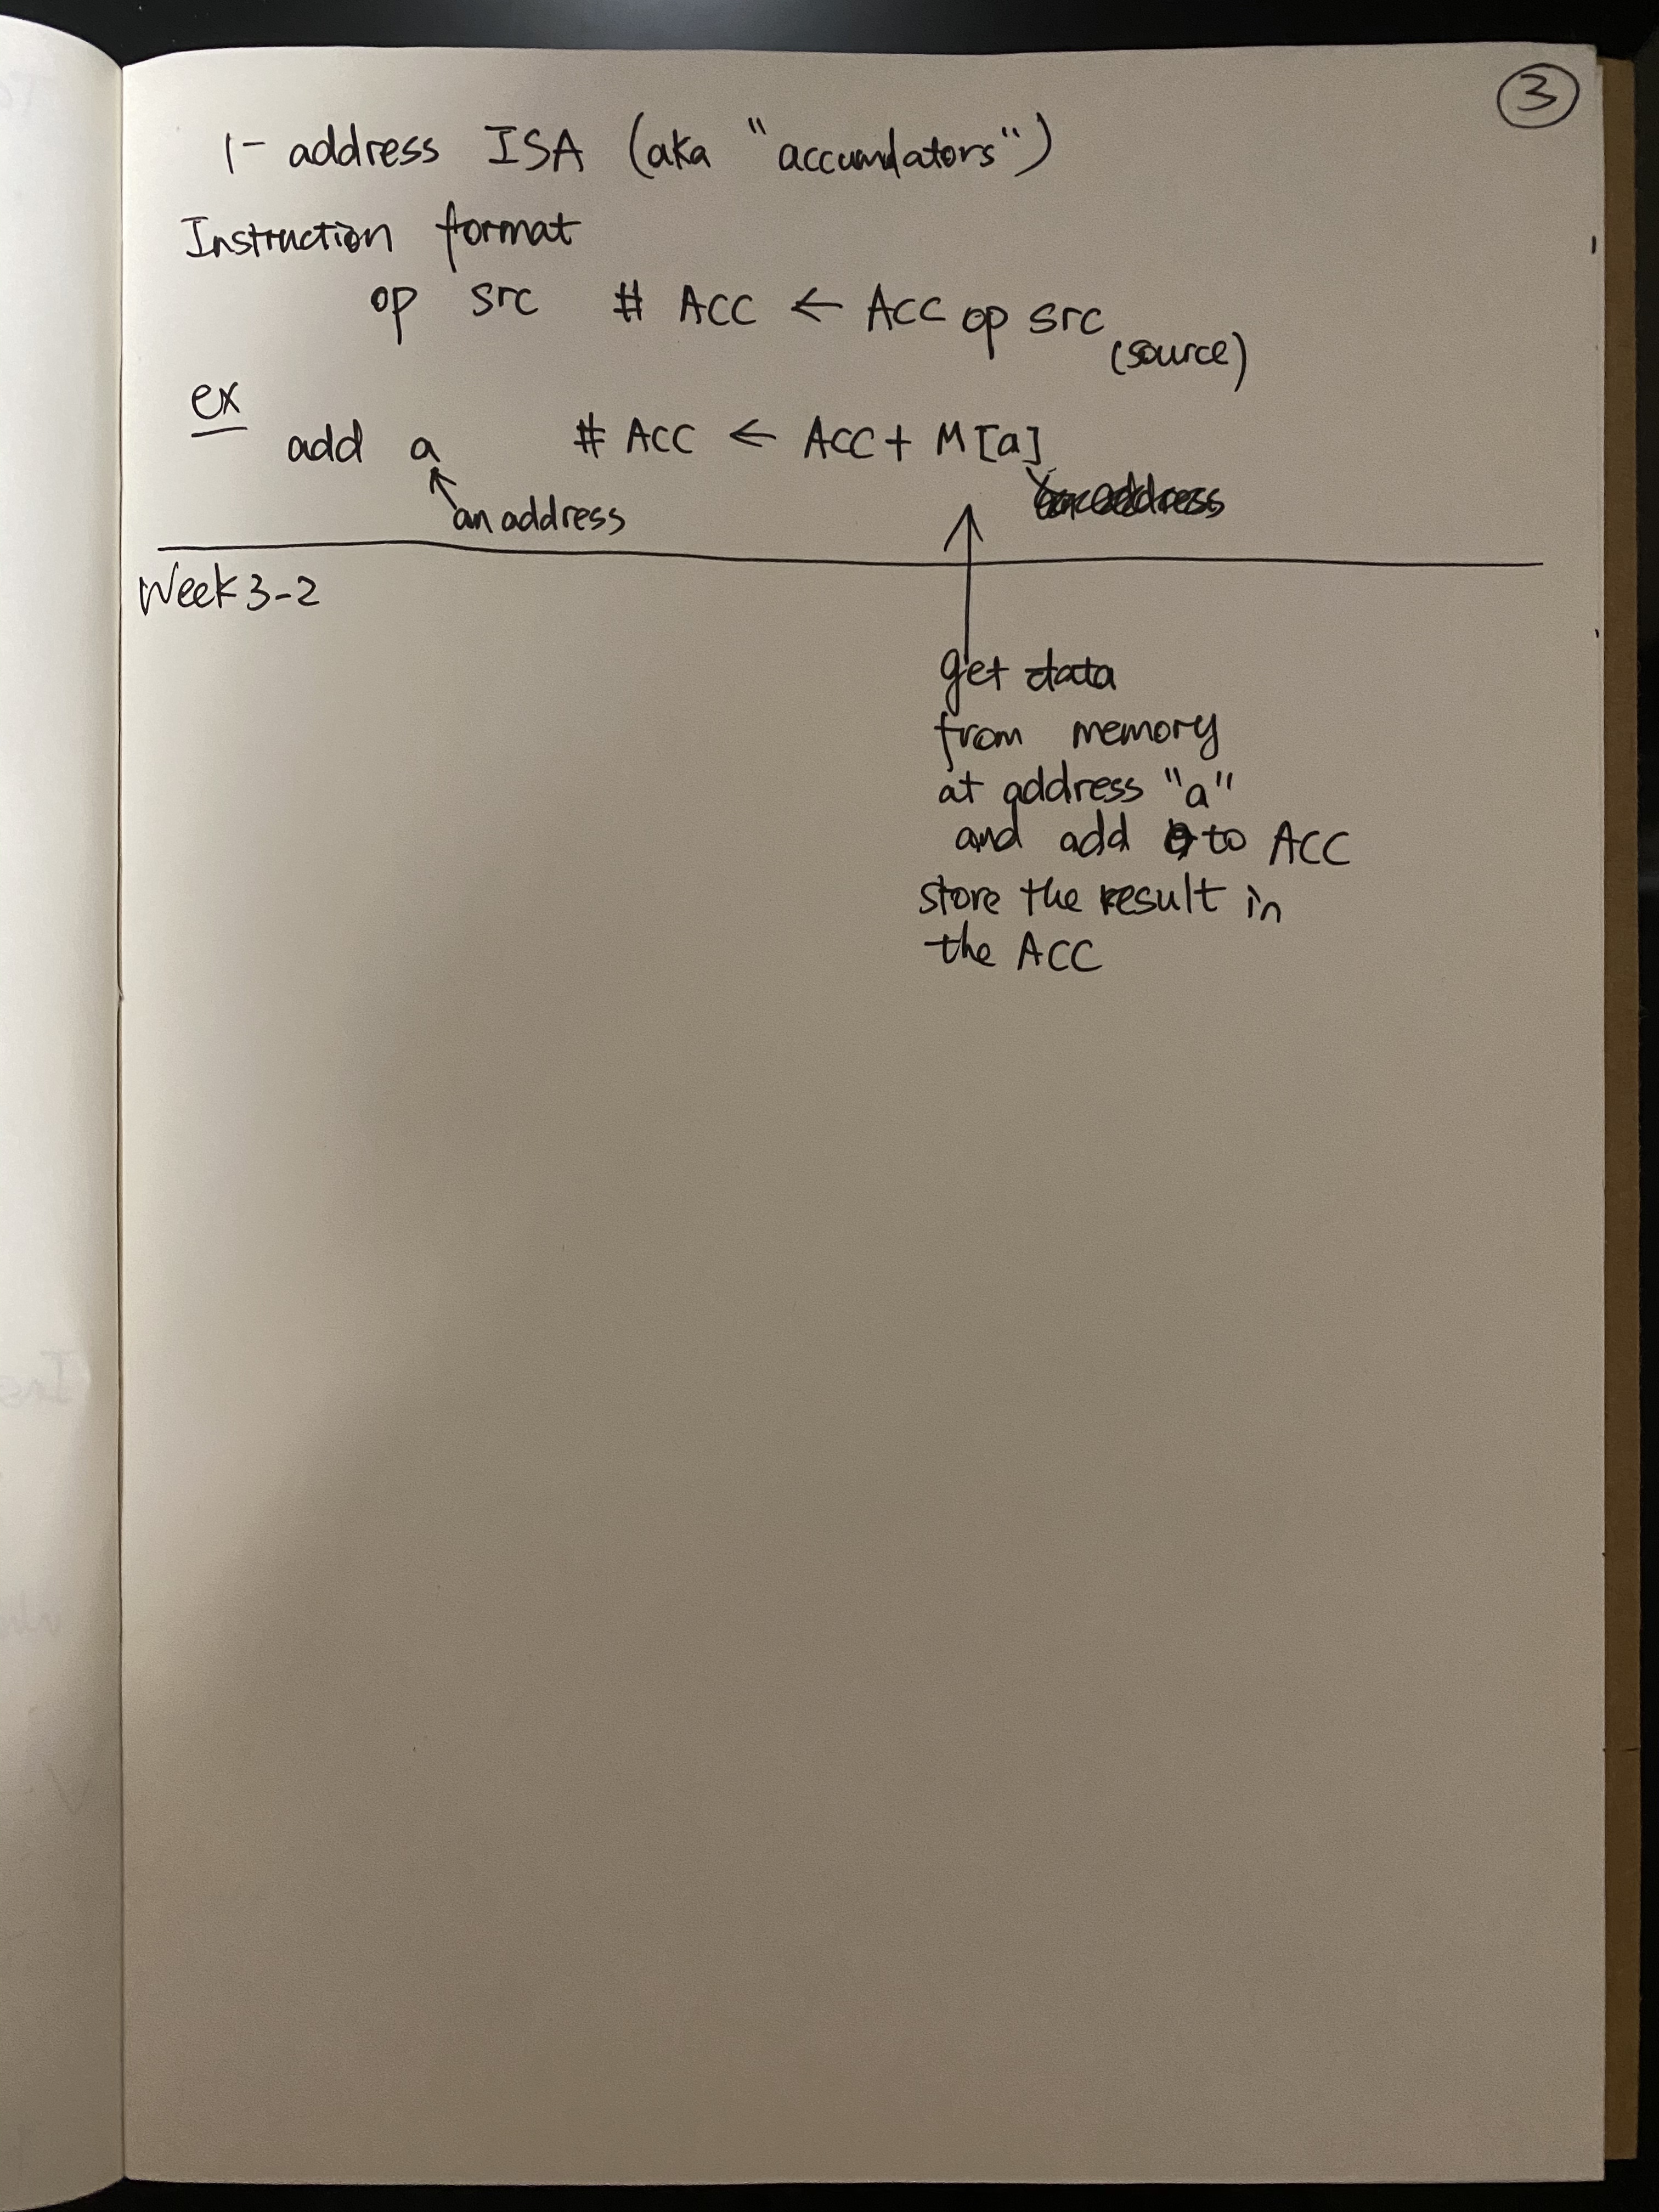 3
1- address ISA (aka "accumulators")
Instruction format
op src # ACC ← ACC op src
(source)
ex
add a # ACC ← ACC + M[a]
an address
Week 3-2
get data
from memory
at address "a"
and add to ACC
store the result in
the ACC